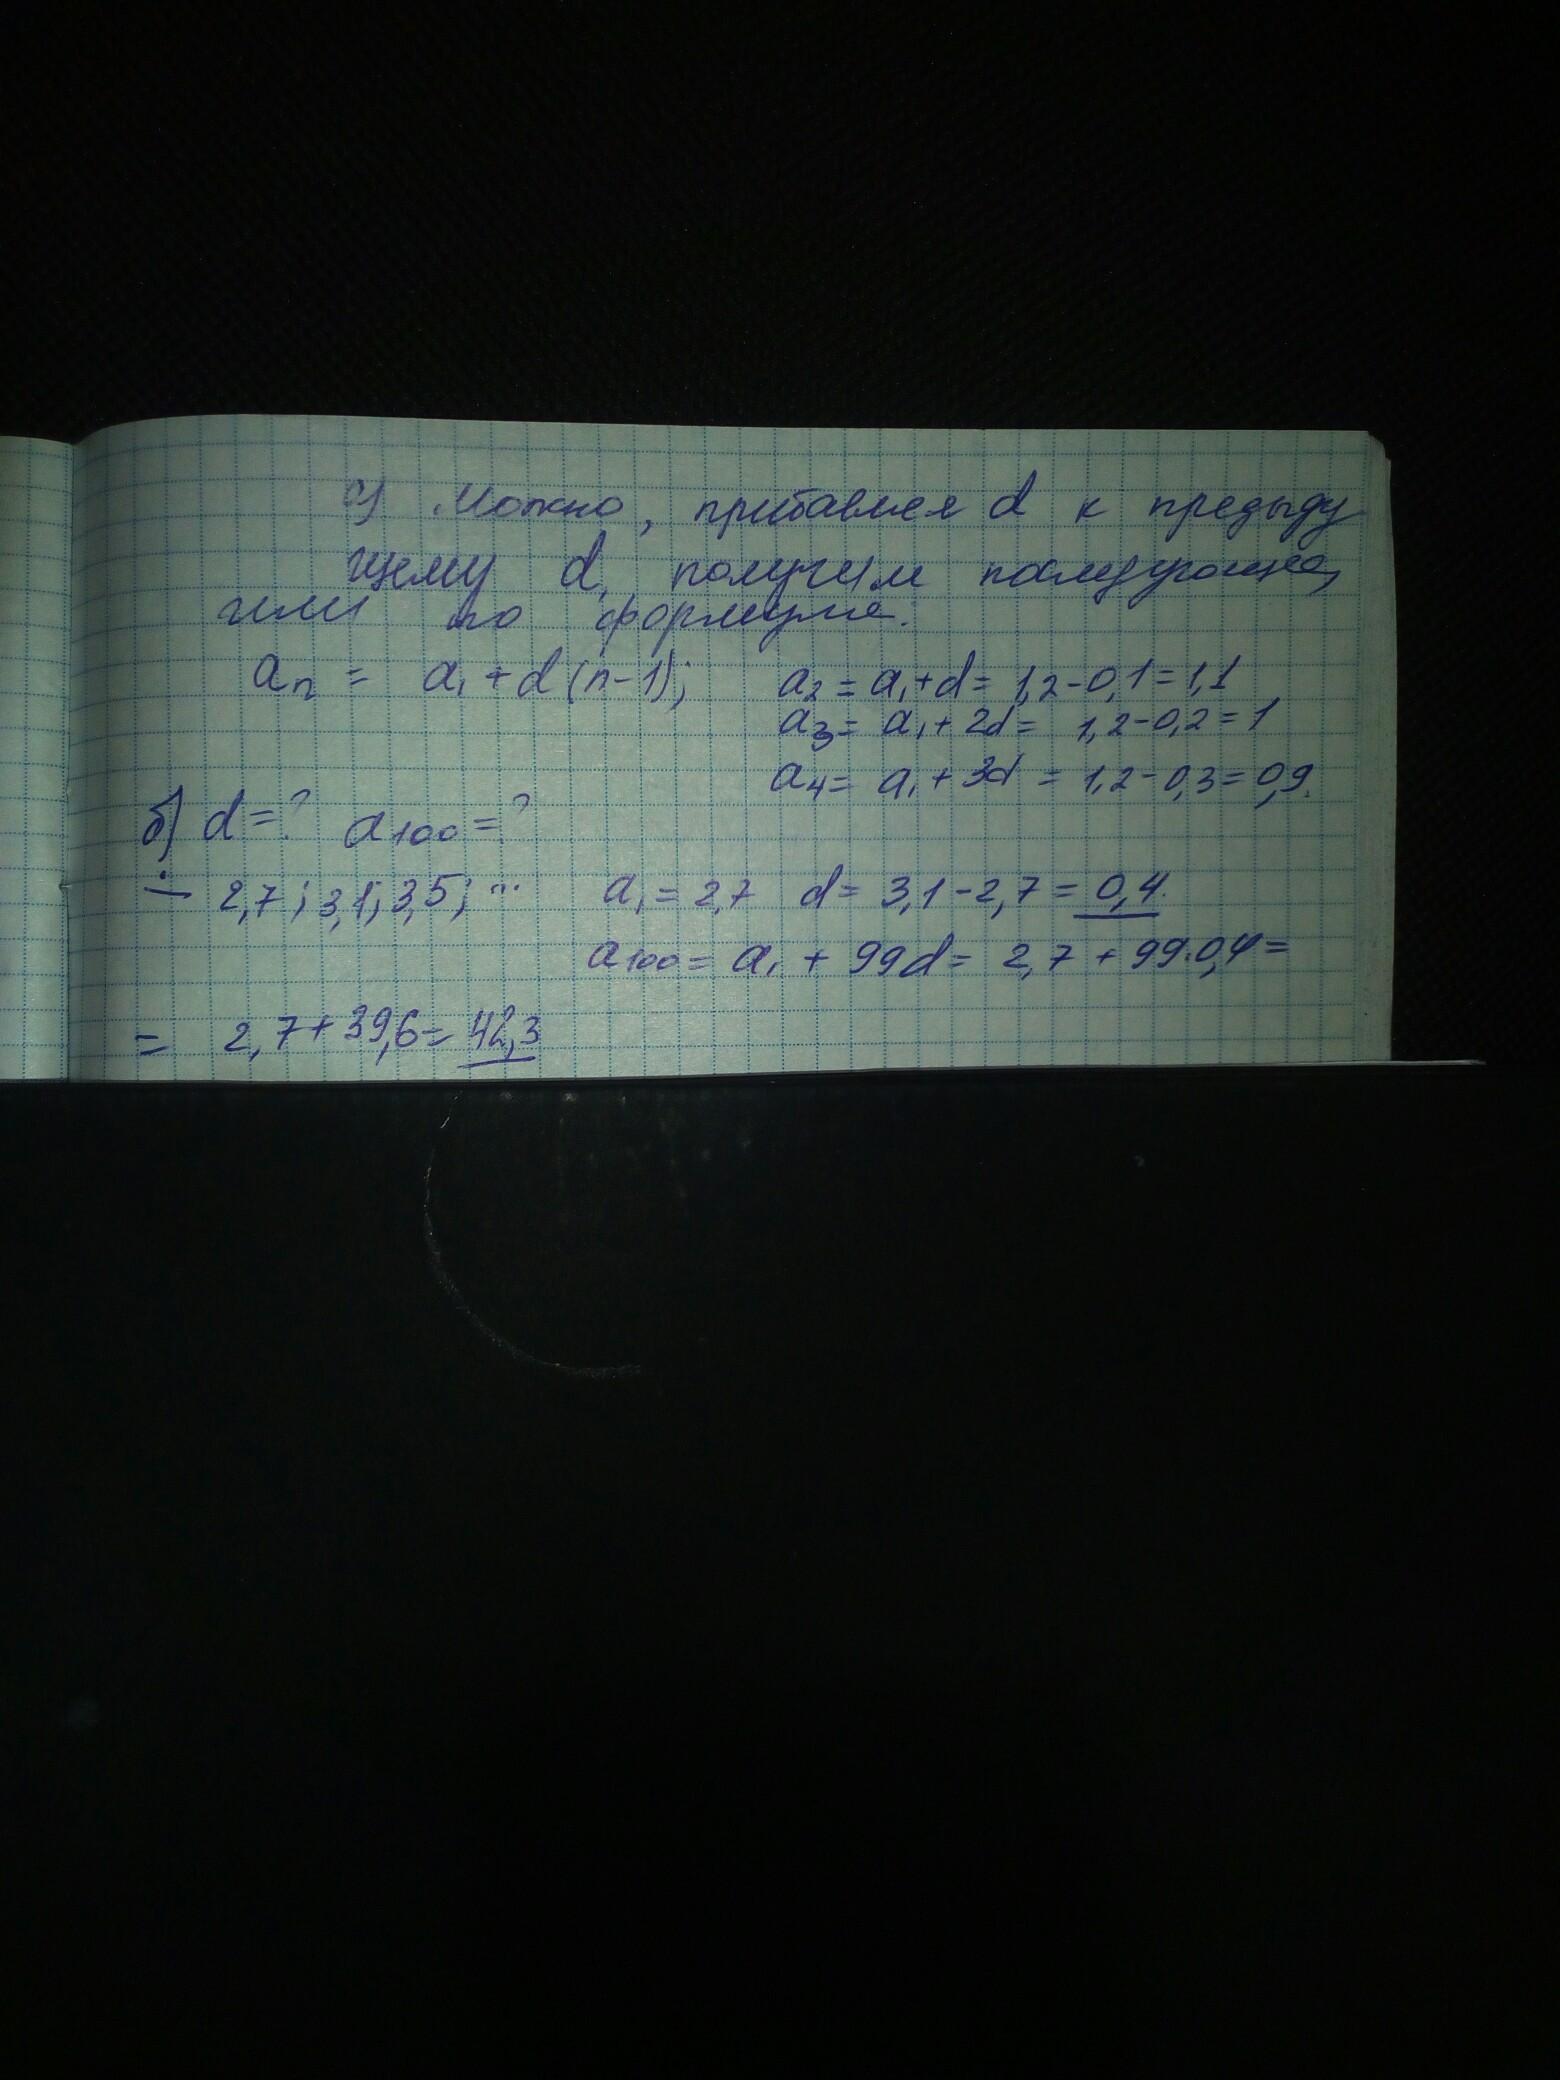 а) Можно, прибавляя d к предыду
щему d, получим последующее,
или по формуле:
aₙ = a₁ + d(n-1); a₂ = a₁+d = 1,2-0,1=1,1
a₃ = a₁ + 2d = 1,2-0,2=1
a₄ = a₁ + 3d = 1,2-0,3=0,9.
б) d=? a₁₀₀=?
÷ 2,7; 3,1; 3,5; ... a₁ = 2,7 d = 3,1-2,7 = 0,4.
a₁₀₀ = a₁ + 99d = 2,7 + 99·0,4=
= 2,7+39,6= 42,3